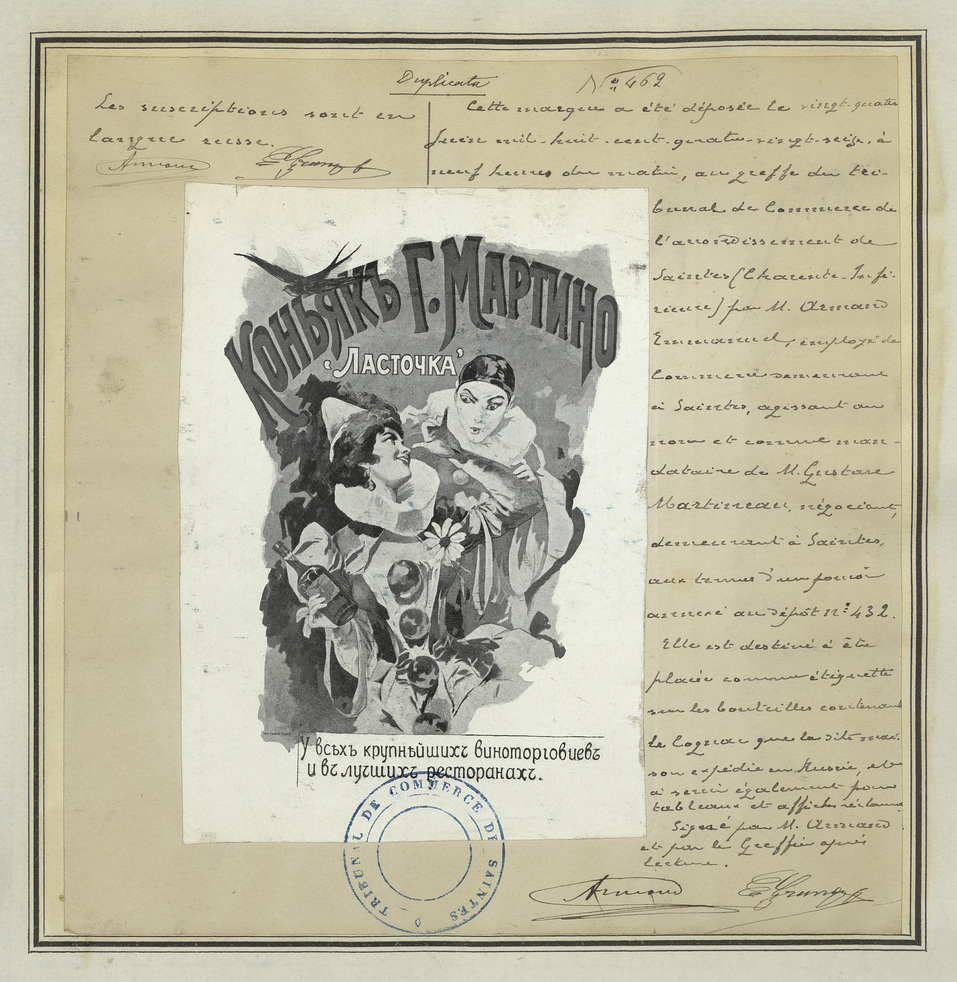 Duplicata
N° 469
Les suscriptions sont en
langue russe.
Armand
Cette marque a été déposée le vingt-quatre
Juin mil-huit-cent-quatre-vingt-seize, à
neuf heures du matin, au greffe du tri-
bunal de Commerce de
l'arrondissement de
Saintes (Charente-Infé-
rieure) par M. Armand
Emmanuel, employé de
Commerce demeurant
à Saintes, agissant au
nom et comme man-
dataire de M. Gustave
Martineau, négociant,
demeurant à Saintes,
aux termes d'un pouvoir
annexé au dépôt N° 432.
Elle est destinée à être
placée comme étiquette
sur les bouteilles contenant
le Cognac que la dite mai-
son expédie en Russie, et
à servir également pour
tableaux et affiches réclames.
Signé par M. Armand
et par le Greffier après
lecture.
Armand
КОНЬЯКЪ Г. МАРТИНО
„ЛАСТОЧКА"
У всѣхъ крупнѣйшихъ виноторговцевъ
и въ лучшихъ ресторанахъ.
TRIBUNAL DE COMMERCE DE SAINTES